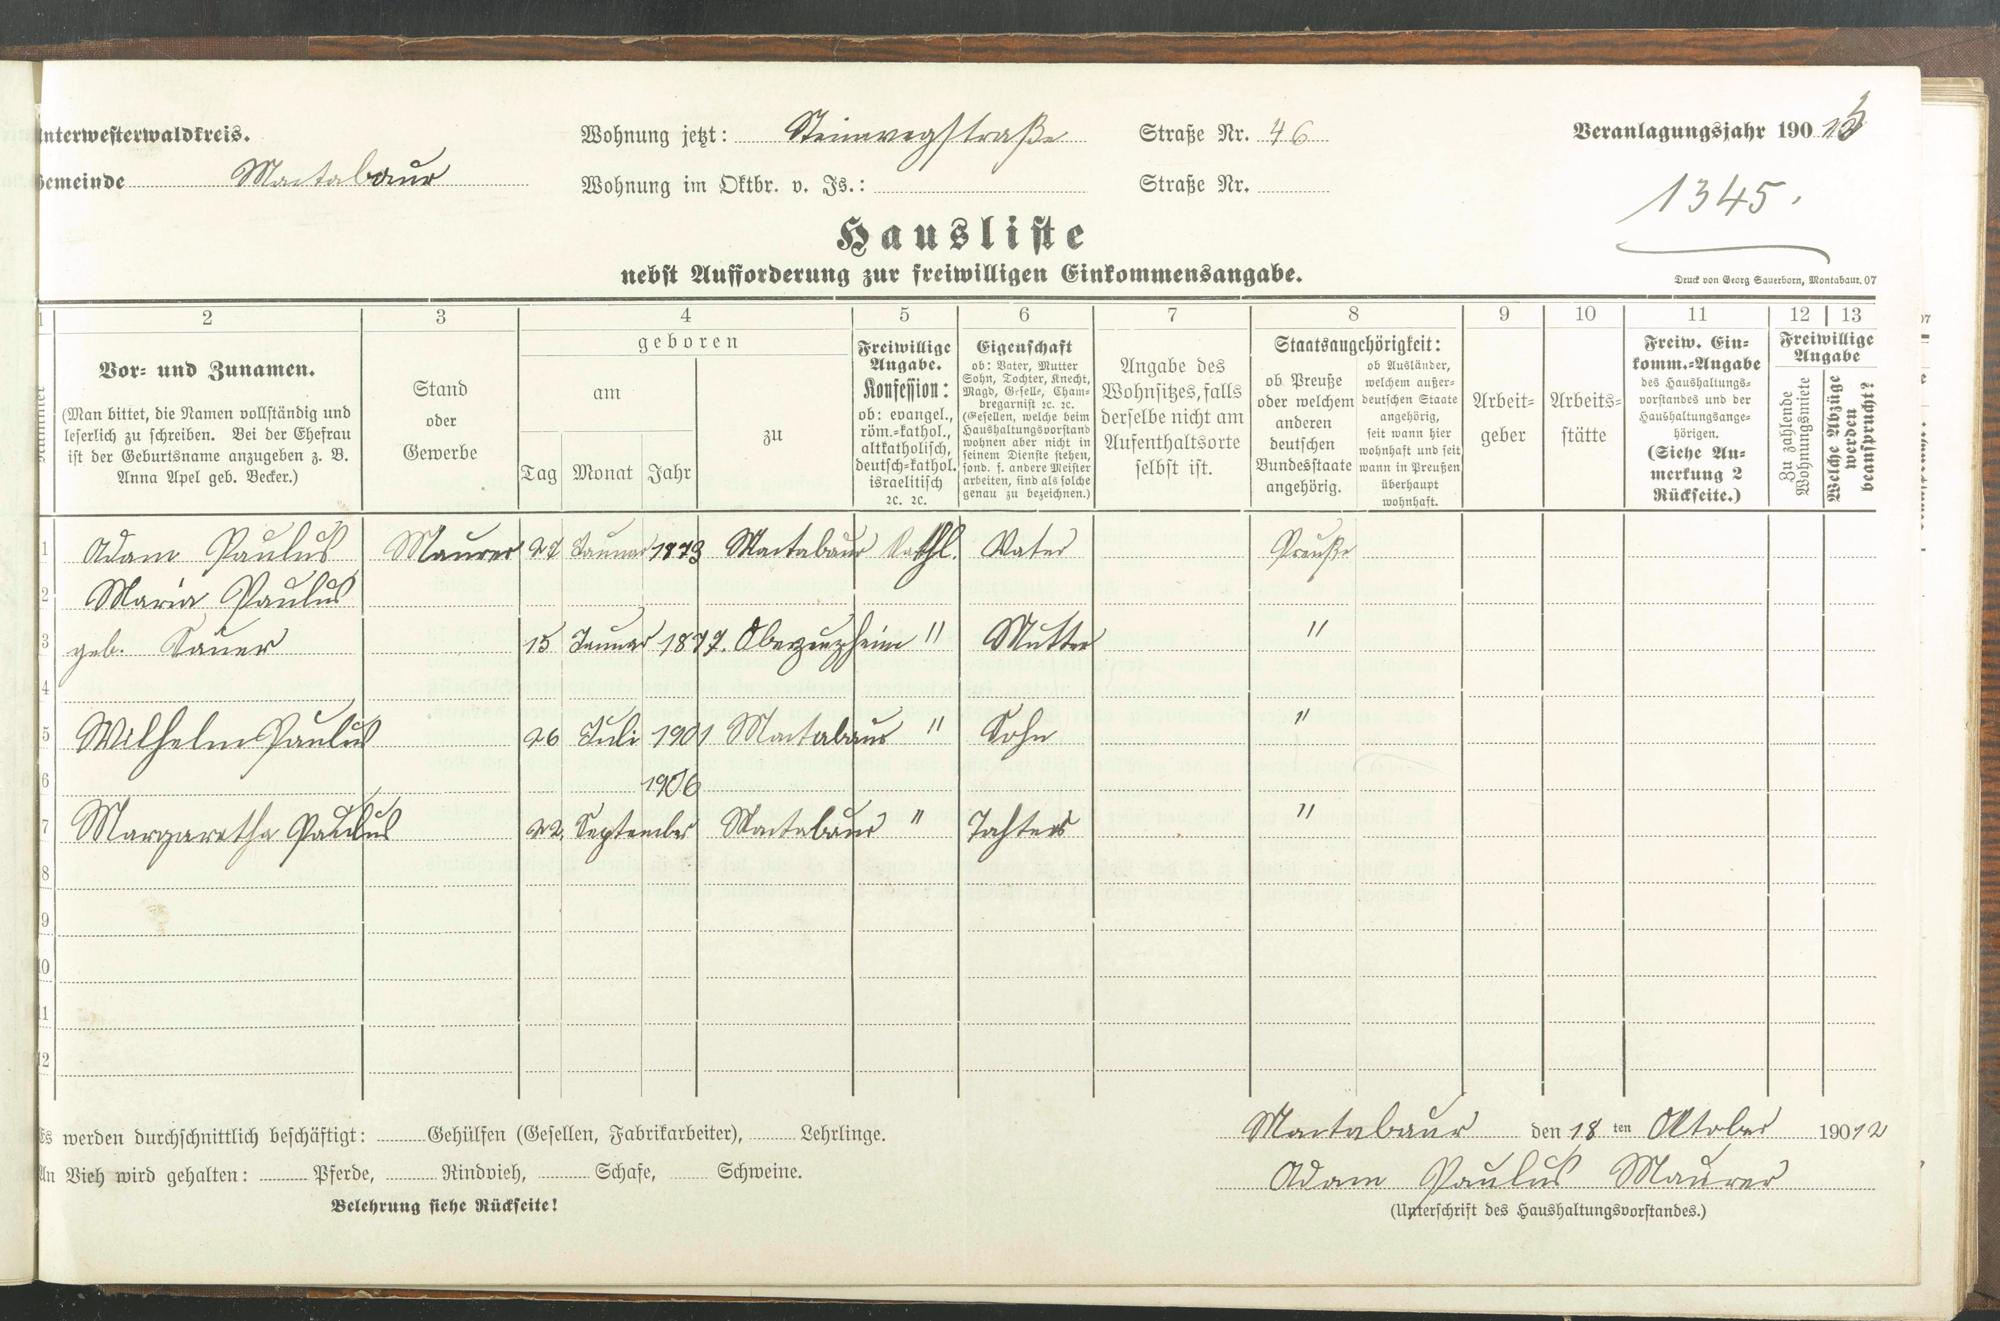 Unterwesterwaldkreis.
Gemeinde Montabaur
Wohnung jetzt: Steinwegstraße Straße Nr. 46
Wohnung im Oktbr. v. Js.: Straße Nr.
Veranlagungsjahr 190 13
1345.
Hausliste
nebst Aufforderung zur freiwilligen Einkommensangabe.
Druck von Georg Sauerborn, Montabaur. 07
1 2 3 4 5 6 7 8 9 10 11 12 13
Nummer
Vor- und Zunamen.
(Man bittet, die Namen vollständig und
leserlich zu schreiben. Bei der Ehefrau
ist der Geburtsname anzugeben z. B.
Anna Apel geb. Becker.)
Stand
oder
Gewerbe
geboren
am
Tag Monat Jahr
zu
Freiwillige
Angabe.
Konfession:
ob: evangel.,
röm.-kathol.,
altkatholisch,
deutsch-kathol.
israelitisch
ꝛc. ꝛc.
Eigenschaft
ob: Vater, Mutter
Sohn, Tochter, Knecht,
Magd, Geselle, Cham-
bregarnist ꝛc. ꝛc.
(Gesellen, welche beim
Haushaltungsvorstand
wohnen aber nicht in
seinem Dienste stehen,
sond. f. andere Meister
arbeiten, sind als solche
genau zu bezeichnen.)
Angabe des
Wohnsitzes, falls
derselbe nicht am
Aufenthaltsorte
selbst ist.
Staatsangehörigkeit:
ob Preuße
oder welchem
anderen
deutschen
Bundesstaate
angehörig.
ob Ausländer,
welchem außer-
deutschen Staate
angehörig,
seit wann hier
wohnhaft und seit
wann in Preußen
überhaupt
wohnhaft.
Arbeit-
geber
Arbeits-
stätte
Freiw. Ein-
komm.-Angabe
des Haushaltungs-
vorstandes und der
Haushaltungsange-
hörigen.
(Siehe An-
merkung 2
Rückseite.)
Freiwillige
Angabe
Zu zahlende
Wohnungsmiete
Welche Abzüge
werden
beansprucht?
1 Adam Paulus Maurer 27 Januar 1873 Montabaur Kathl. Vater Preuße
2 Maria Paulus
3 geb. Sauer 15 Januar 1877. Oberzeuzheim " Mutter "
4
5 Wilhelm Paulus 26 Juli 1901 Montabaur " Sohn "
6 1906
7 Margaretha Paulus 22. September Montabaur " Tohters "
8
9
10
11
12
Es werden durchschnittlich beschäftigt: Gehülfen (Gesellen, Fabrikarbeiter), Lehrlinge.
An Vieh wird gehalten: Pferde, Rindvieh, Schafe, Schweine.
Belehrung siehe Rückseite!
Montabaur den 18 ten Oktober 190 12
Adam Paulus Maurer
(Unterschrift des Haushaltungsvorstandes.)